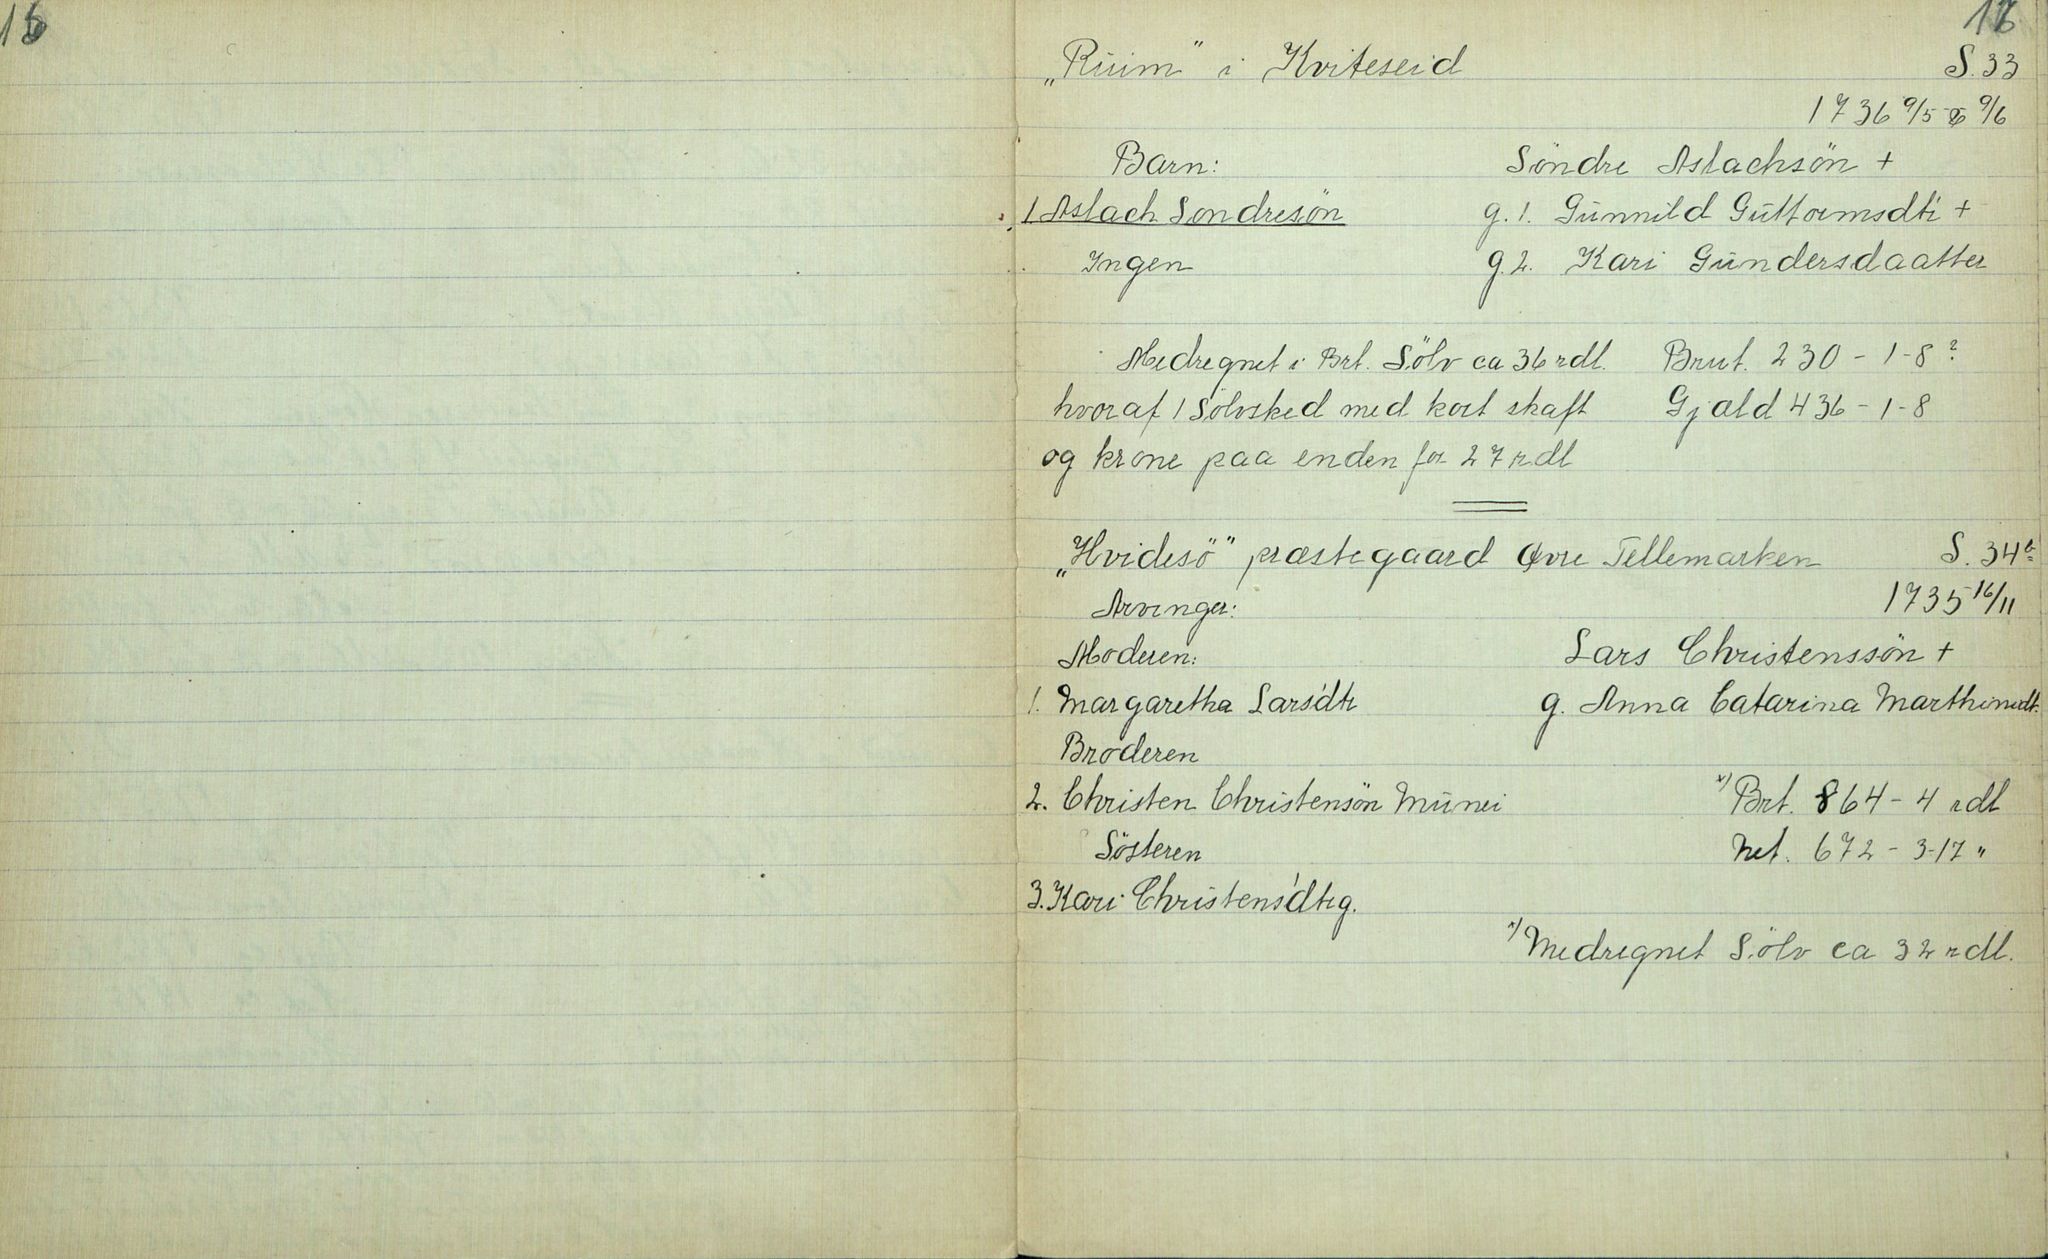 „Ruim" i Kviteseid S. 33
1736 9/5 & 9/6
Barn: Söndre Aslachsön +
1 Aslach Sondresön g. 1. Gŭnnild Gŭttormsdtr +
Ingen g. 2. Kari Gŭndersdaatter
Medregnet i Brt. Sölv ca 36 rdl. Brut. 230 - 1 - 8 ?
hvoraf 1 Sölvsked med kort skaft Gjæld 436 - 1 - 8
og krone paa enden for 27 rdl
„Hvidesö" præstegaard Øvre Tellemarken S. 34 b
Arvinger: 1735 16/11
Moderen: Lars Christenssön +
1. Margaretha Lars'dtr g. Anna Catarina
Broderen
2. Christen Christensön Mŭnei x) Brt. 864 - 4 rdl
Sösteren Net. 672 - 3-17 "
3. Kari Christens'dtr g.
x) Medregnet Sölv ca 32 rdl.